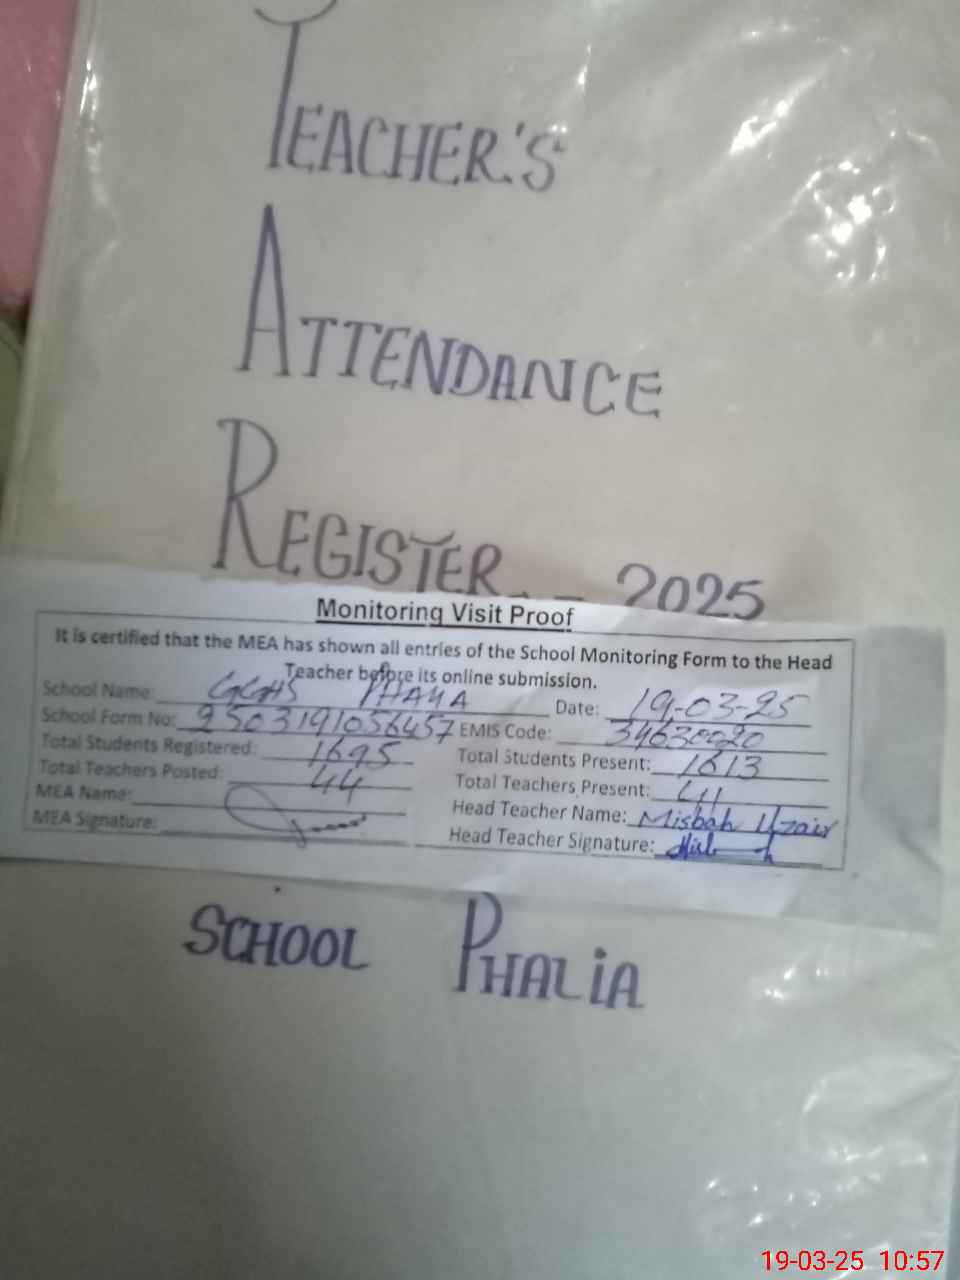 TEACHER'S
ATTENDANCE
REGISTER - 2025
Monitoring Visit Proof
It is certified that the MEA has shown all entries of the School Monitoring Form to the Head
Teacher before its online submission.
School Name: GGHS Date: 19-03-25
School Form No: 9503191056457 EMIS Code: 34630020
Total Students Registered: 1695 Total Students Present: 1613
Total Teachers Posted: 44 Total Teachers Present: 41
MEA Name: Head Teacher Name: Misbah Uzair
MEA Signature: Head Teacher Signature:
SCHOOL PHALIA
19-03-25 10:57